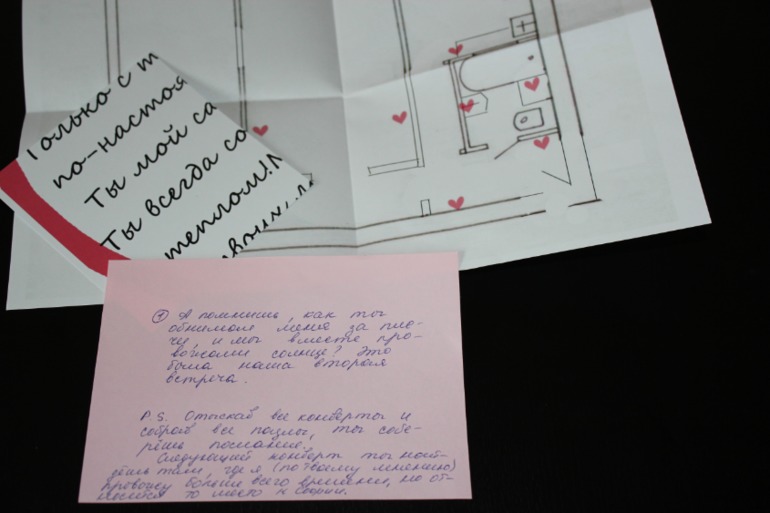 Только с т
по-настоя
Ты мой са
Ты всегда со
теплом!
① А помнишь, как ты
обнимал меня за пле-
чи, и мы вместе про-
вожали солнце? Это
была наша вторая
встреча.
P.S. Отыскав все конверты и
собрав все пазлы, ты собе-
рёшь послание.
Следующий конверт ты най-
дёшь там, где я (по твоему мнению)
провожу больше всего времени, но от-
носится то место к